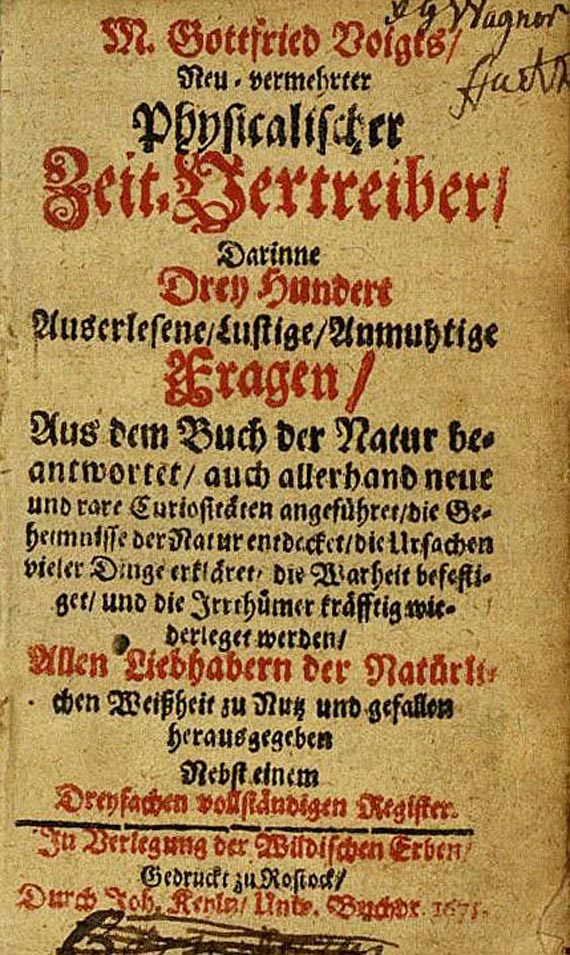 M. Gottfried Voigts/
Neu-vermehrter
Physicalischer
Zeit-Vertreiber/
Darinne
Drey Hundert
Auserlesene/Lustige/Anmuhtige
Fragen/
Aus dem Buch der Natur be-
antwortet/ auch allerhand neue
und rare Curiositäten angeführet/die Ge-
heimnisse der Natur entdecket/die Ursachen
vieler Dinge erkläret/ die Warheit befesti-
get/ und die Irrthümer kräfftig wie-
derleget werden/
Allen Liebhabern der Natürli-
chen Weißheit zu Nutz und gefallen
herausgegeben
Nebst einem
Dreyfachen vollständigen Register.
In Verlegung der Wildischen Erben/
Gedruckt zu Rostock/
Durch Joh. Keyln/ Univ. Buchdr. 1671.
Wagner